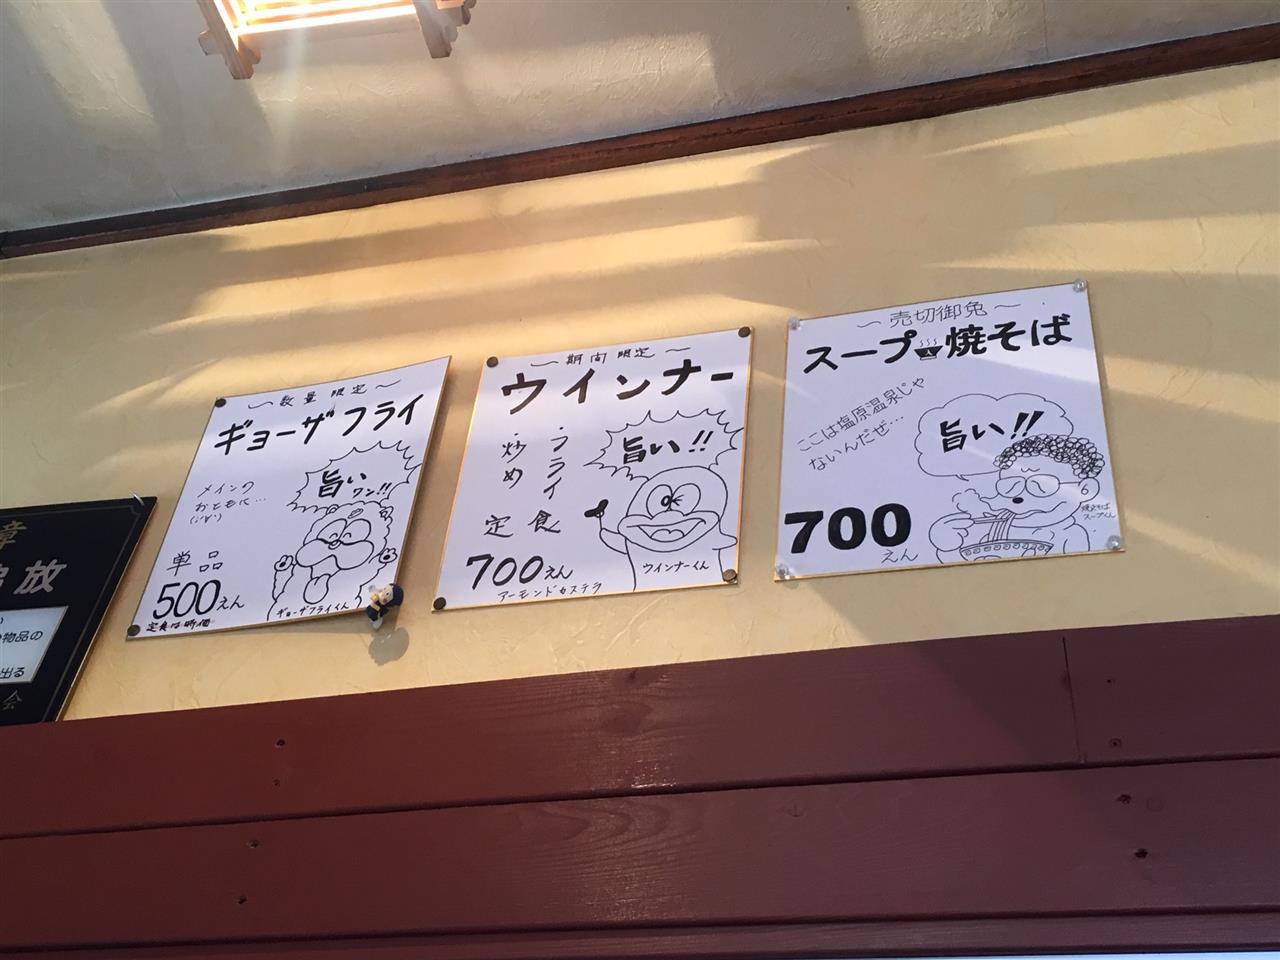 章
放
物品の
出る
会
〜数量限定〜
ギョーザフライ
メインの
おともに…
旨い
ワン!!
単品
500えん
ギョーザフライくん
定食は時価
〜期間限定〜
ウインナー
・フライ
・炒め
定食
旨い!!
700えん
ウインナーくん
アーモンドカステラ
〜売切御免〜
スープ焼そば
ここは塩原温泉じゃ
ないんだぜ…
旨い!!
700えん
焼きそば
スープくん